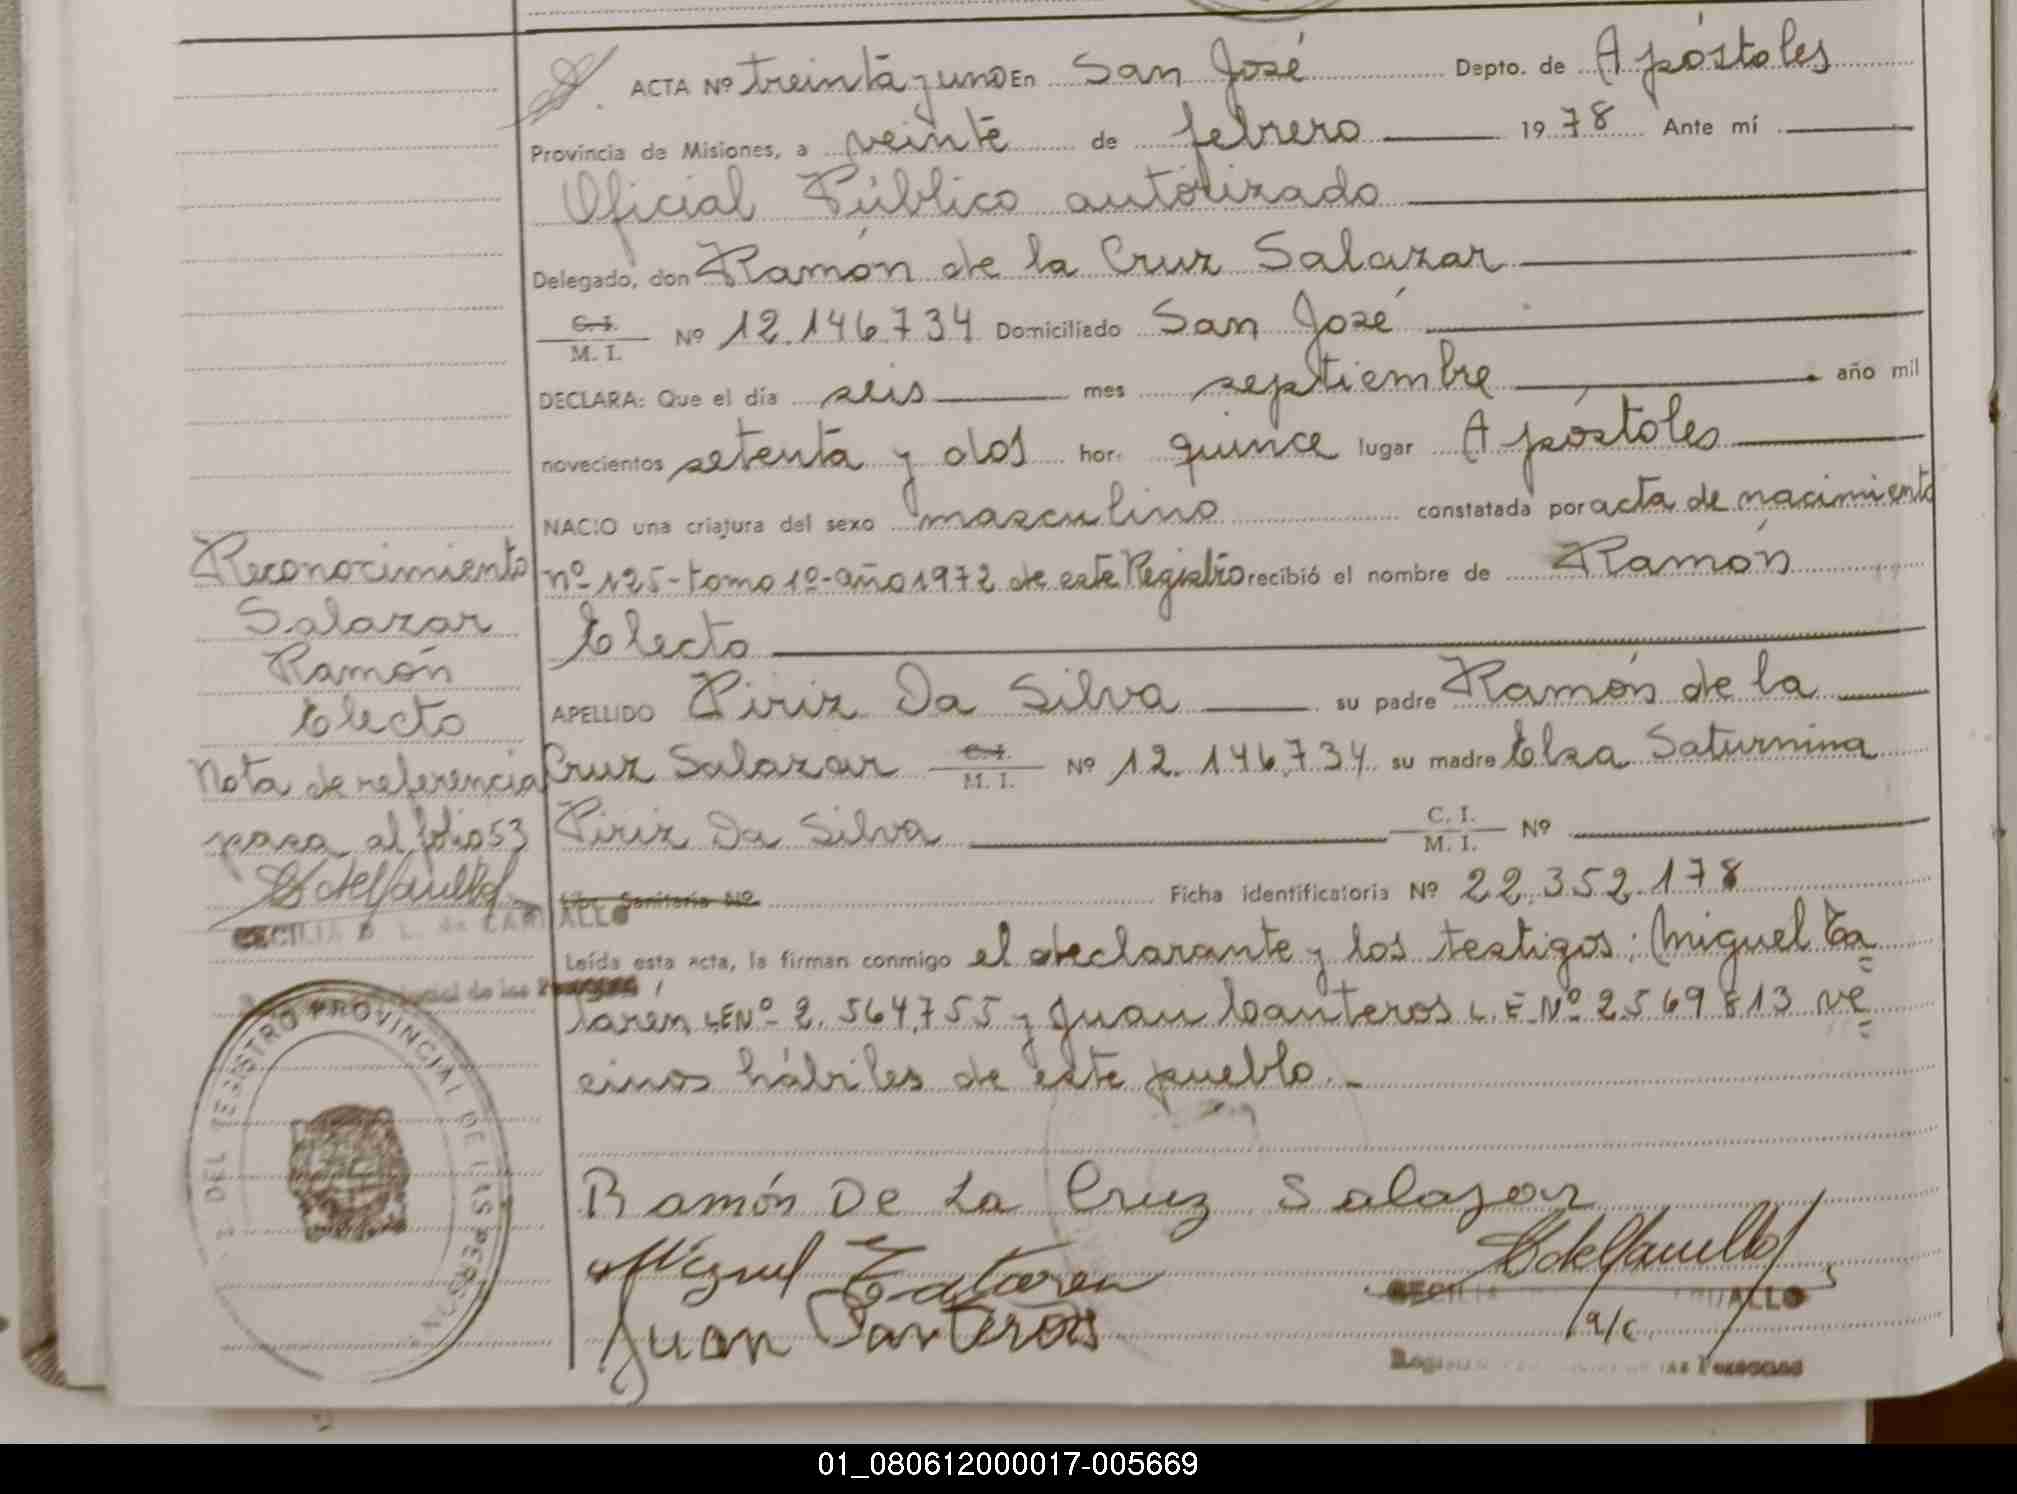 ACTA Nº treinta y uno En San José Depto. de Apóstoles
Provincia de Misiones, a veinte de febrero 1978 Ante mí
Oficial Público autorizado
Delegado, don Ramón de la Cruz Salazar
C. I.
M. I. Nº 12.146.734 Domiciliado San José
DECLARA: Que el día seis mes septiembre año mil
novecientos setenta y dos hor. quince lugar Apóstoles
NACIO una criatura del sexo masculino constatada por acta de nacimiento
nº 125-tomo 1º-año 1972 de este Registro recibió el nombre de Ramón
Electo
APELLIDO Piriz Da Silva su padre Ramón de la
Cruz Salazar C. I.
M. I. Nº 12.146.734 su madre Elsa Saturnina
Piriz Da Silva C. I.
M. I. Nº
Sanitaria Nº Ficha identificatoria Nº 22.352.178
Leída esta acta, la firman conmigo el declarante y los testigos: Miguel Ta
laren, LE Nº 2.564.755 y Juan Canteros L.E. Nº 2569813 ve
cinos hábiles de este pueblo.-
Ramón De La Cruz Salazar
Miguel
Juan Canteros
CECILIA
a/c
Personas
Reconocimiento
Salazar
Ramón
Electo
Nota de referencia
pasa al folio 53
CECILIA D. L. de
REGISTRO PROVINCIAL DE LAS PERSONAS
01_080612000017-005669